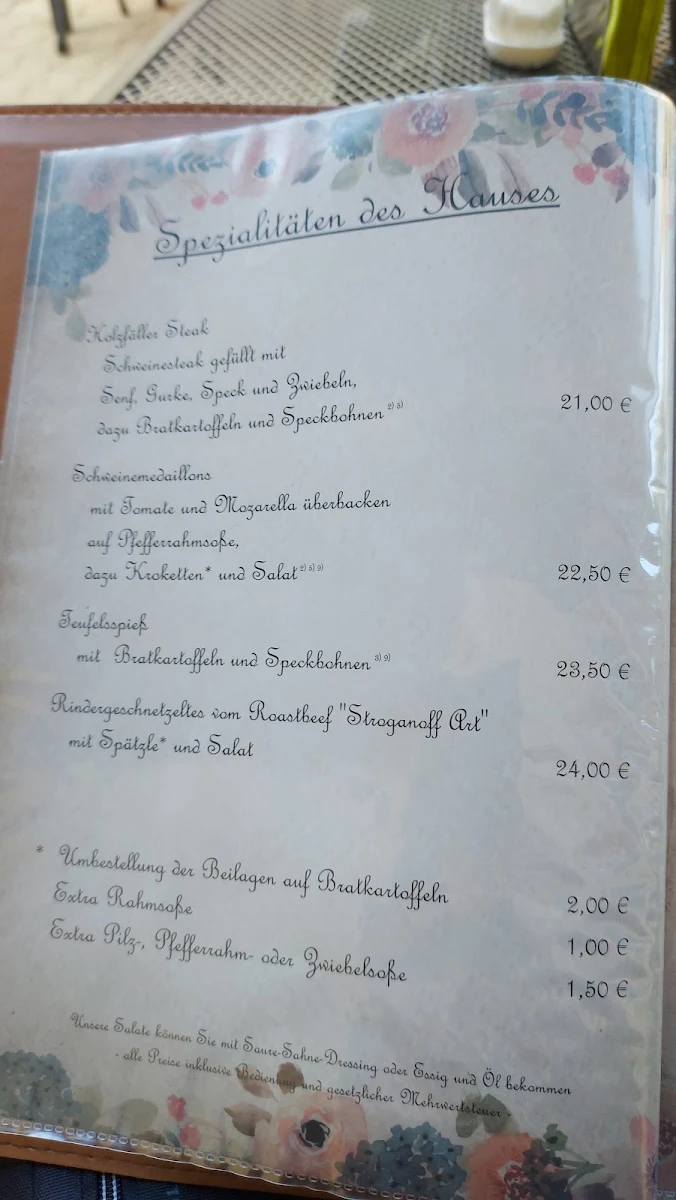 Spezialitäten des Hauses
Holzfäller Steak
Schweinesteak gefüllt mit
Senf, Gurke, Speck und Zwiebeln,
dazu Bratkartoffeln und Speckbohnen 2) 5) 21,00 €
Schweinemedaillons
mit Tomate und Mozarella überbacken
auf Pfefferrahmsoße,
dazu Kroketten* und Salat 2) 5) 9) 22,50 €
Teufelsspieß
mit Bratkartoffeln und Speckbohnen 3) 9) 23,50 €
Rindergeschnetzeltes vom Roastbeef "Stroganoff Art"
mit Spätzle* und Salat 24,00 €
* Umbestellung der Beilagen auf Bratkartoffeln 2,00 €
Extra Rahmsoße 1,00 €
Extra Pilz-, Pfefferrahm- oder Zwiebelsoße 1,50 €
Unsere Salate können Sie mit Saure-Sahne-Dressing oder Essig und Öl bekommen
- alle Preise inklusive Bedienung und gesetzlicher Mehrwertsteuer -